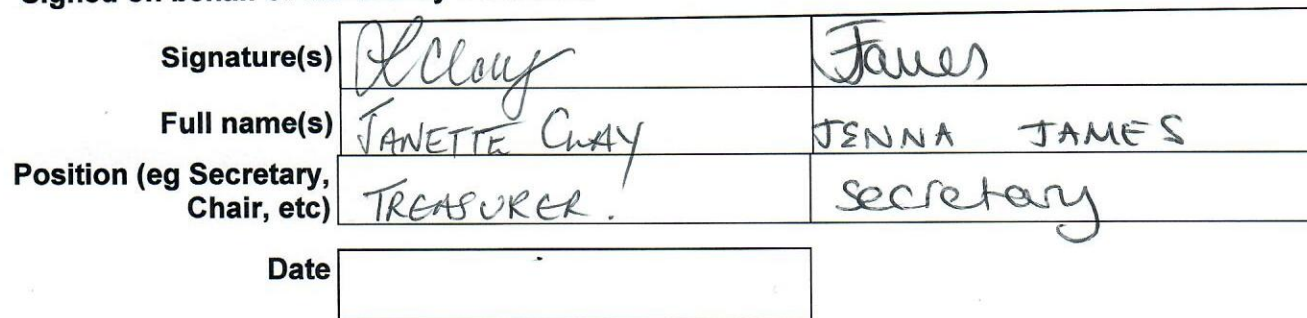 Signature(s) Clay James
Full name(s) JANETTE CLAY JENNA JAMES
Position (eg Secretary,
Chair, etc) TREASURER. Secretary
Date